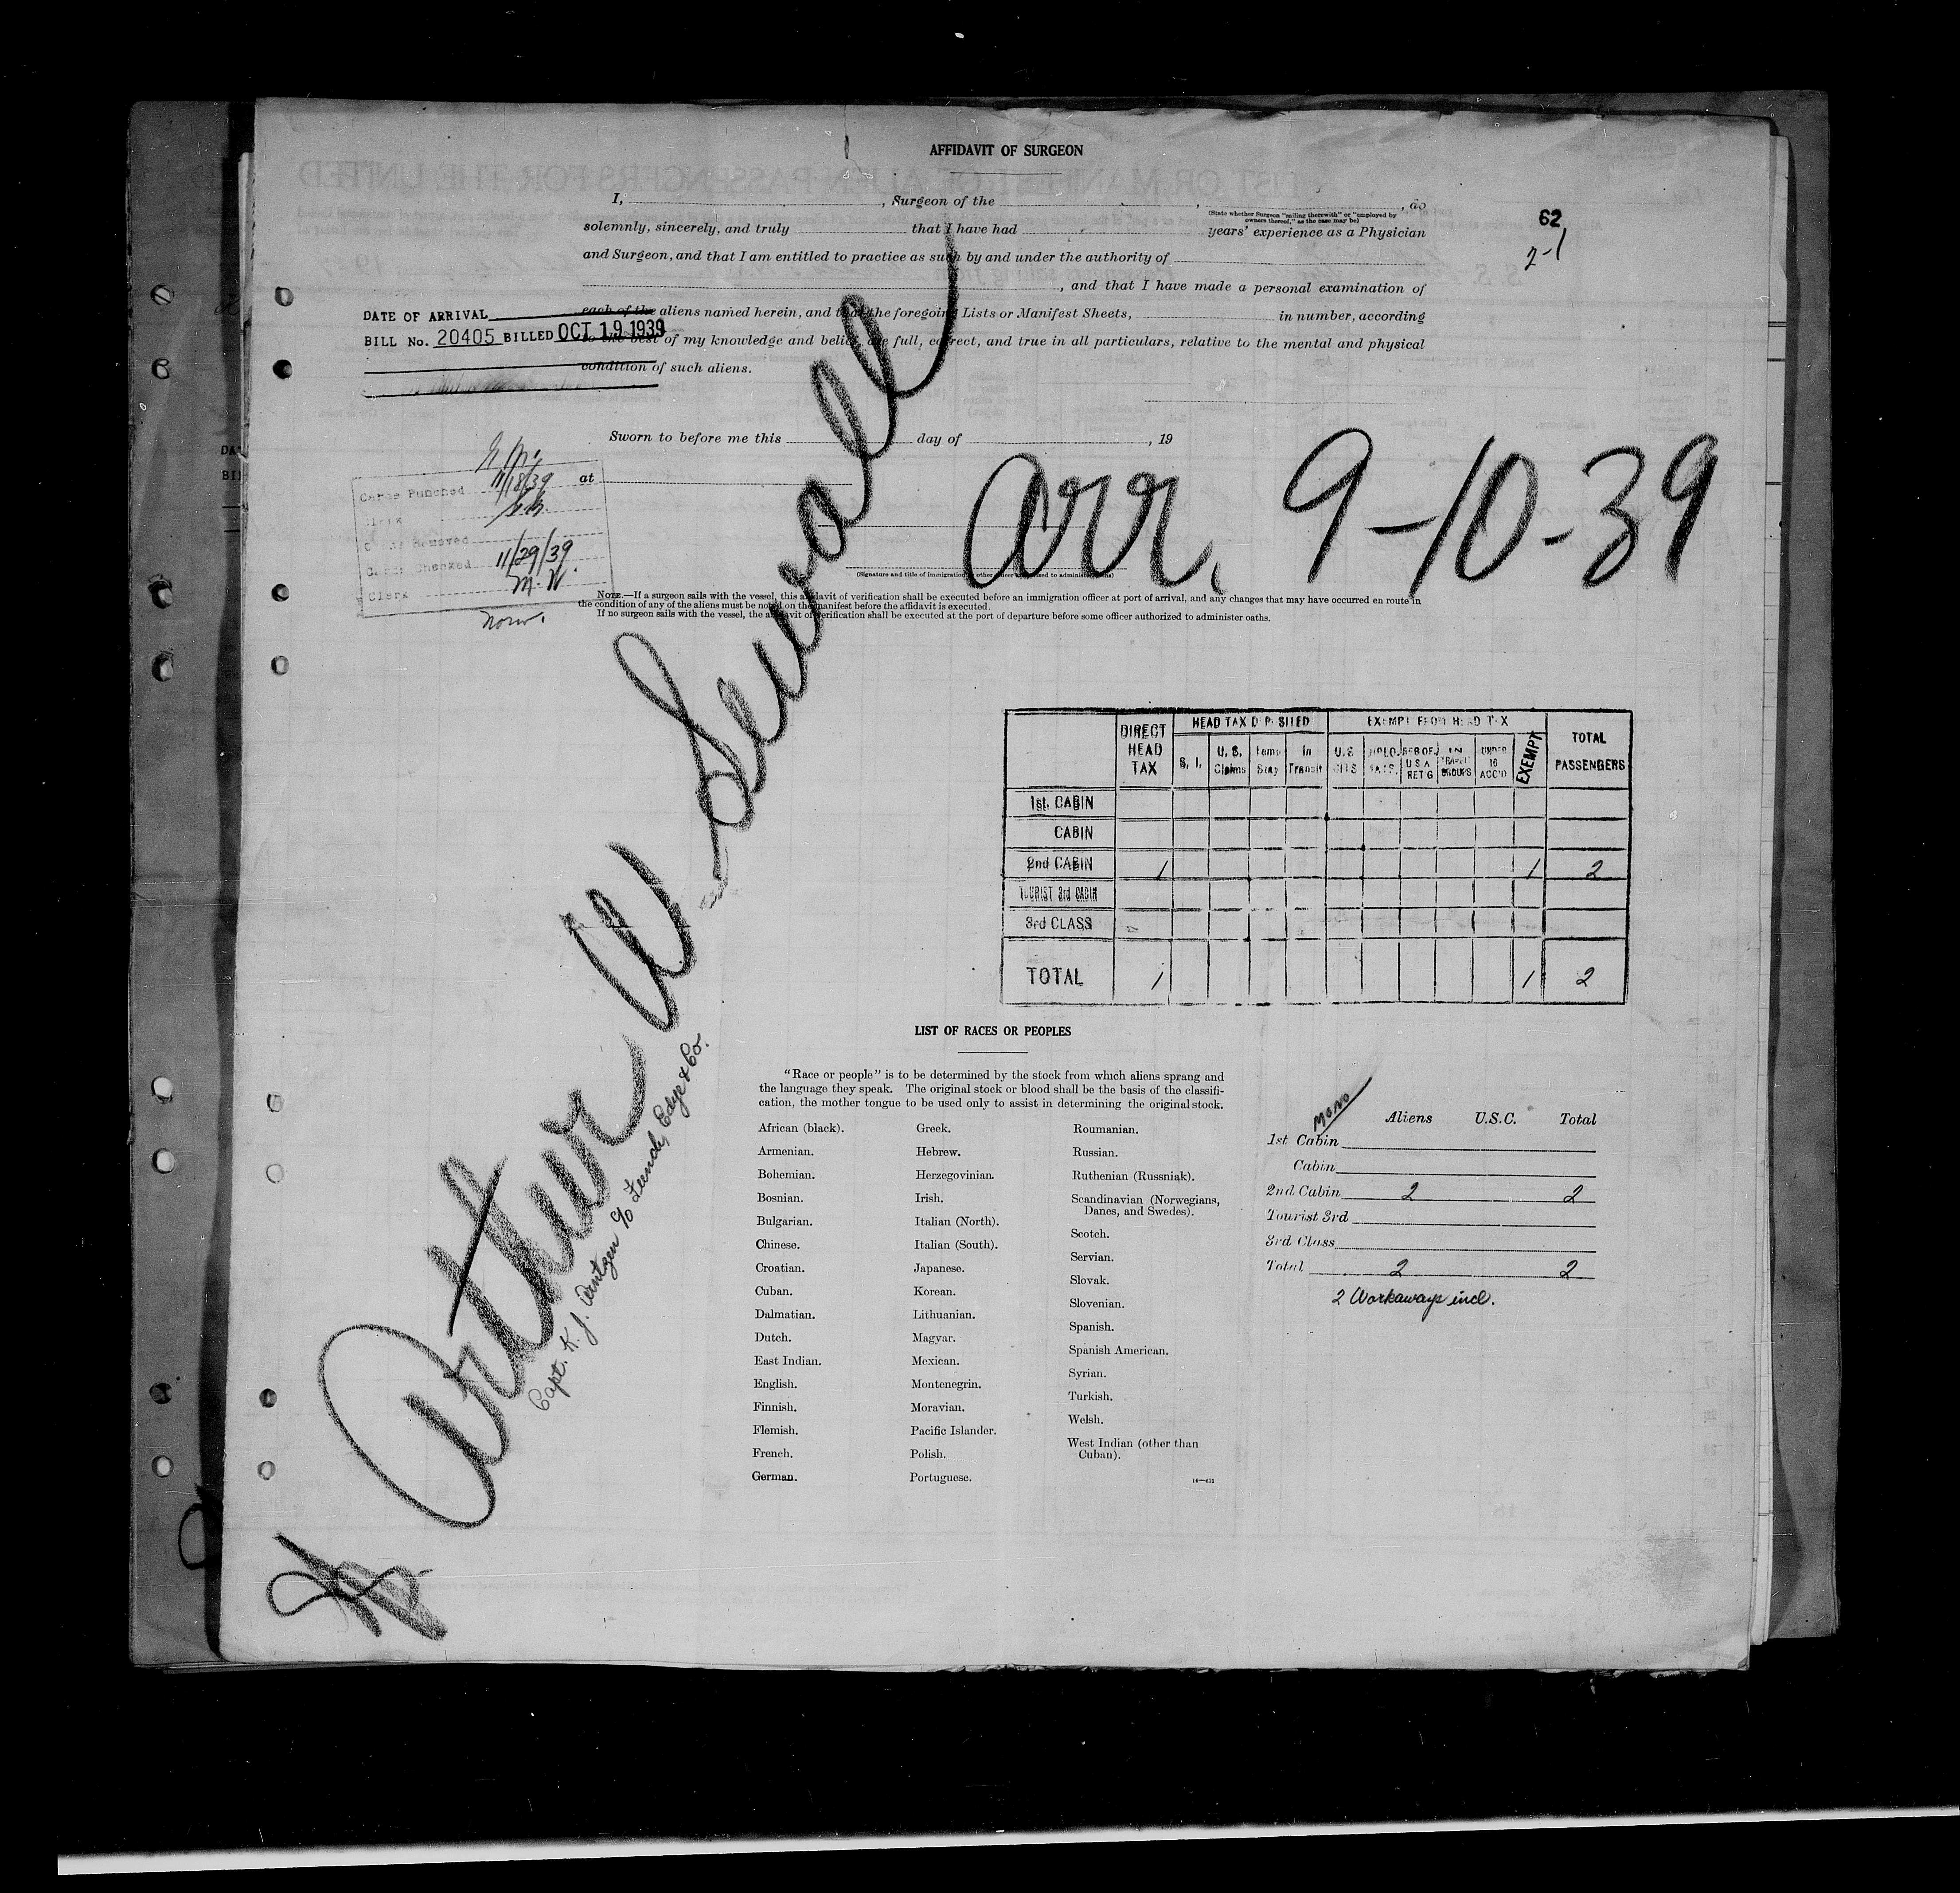 AFFIDAVIT OF SURGEON
I, , Surgeon of the , , do
(State whether Surgeon "sailing therewith" or "employed by owners thereof," as the case may be)
62
2-1
solemnly, sincerely, and truly that I have had years' experience as a Physician
and Surgeon, and that I am entitled to practice as such by and under the authority of
, and that I have made a personal examination of
each of the aliens named herein, and that the foregoing Lists or Manifest Sheets, in number, according
to the best of my knowledge and belief, are full, correct, and true in all particulars, relative to the mental and physical
condition of such aliens.
DATE OF ARRIVAL
BILL No. 20405 BILLED OCT 19 1939
Sworn to before me this day of , 19
at
Cards Punched 11/18/39
Clerk
Cards Removed
Cards Checked 11/29/39
Clerk M. W.
Norw.
arr. 9-10-39
(Signature and title of immigration or other officer authorized to administer oaths)
NOTE.—If a surgeon sails with the vessel, this affidavit of verification shall be executed before an immigration officer at port of arrival, and any changes that may have occurred en route in
the condition of any of the aliens must be noted on the manifest before the affidavit is executed.
If no surgeon sails with the vessel, the affidavit of verification shall be executed at the port of departure before some officer authorized to administer oaths.
Arthur W Sewall
Capt. K. J. Arntzen c/o Funch, Edye & Co.
DIRECT HEAD TAX
HEAD TAX DEPOSITED
EXEMPT FROM HEAD TAX
TOTAL PASSENGERS
S. I.
U. S. Claims
Temp Stay
In Transit
U.S CITS
DIPLO. MATS.
RES OF U S A RET'G
IN TRANSIT GROUPS
UNDER 16 ACC'D
EXEMPT
1st. CABIN
CABIN
2nd CABIN 1 1 2
TOURIST 3rd CABIN
3rd CLASS
TOTAL 1 1 2
LIST OF RACES OR PEOPLES
"Race or people" is to be determined by the stock from which aliens sprang and
the language they speak. The original stock or blood shall be the basis of the classifi-
cation, the mother tongue to be used only to assist in determining the original stock.
African (black).
Armenian.
Bohemian.
Bosnian.
Bulgarian.
Chinese.
Croatian.
Cuban.
Dalmatian.
Dutch.
East Indian.
English.
Finnish.
Flemish.
French.
German.
Greek.
Hebrew.
Herzegovinian.
Irish.
Italian (North).
Italian (South).
Japanese.
Korean.
Lithuanian.
Magyar.
Mexican.
Montenegrin.
Moravian.
Pacific Islander.
Polish.
Portuguese.
Roumanian.
Russian.
Ruthenian (Russniak).
Scandinavian (Norwegians,
Danes, and Swedes).
Scotch.
Servian.
Slovak.
Slovenian.
Spanish.
Spanish American.
Syrian.
Turkish.
Welsh.
West Indian (other than
Cuban).
Aliens U.S.C. Total
1st Cabin
Cabin
2nd Cabin 2 2
Tourist 3rd
3rd Class
Total 2 2
2 Workaways incl.